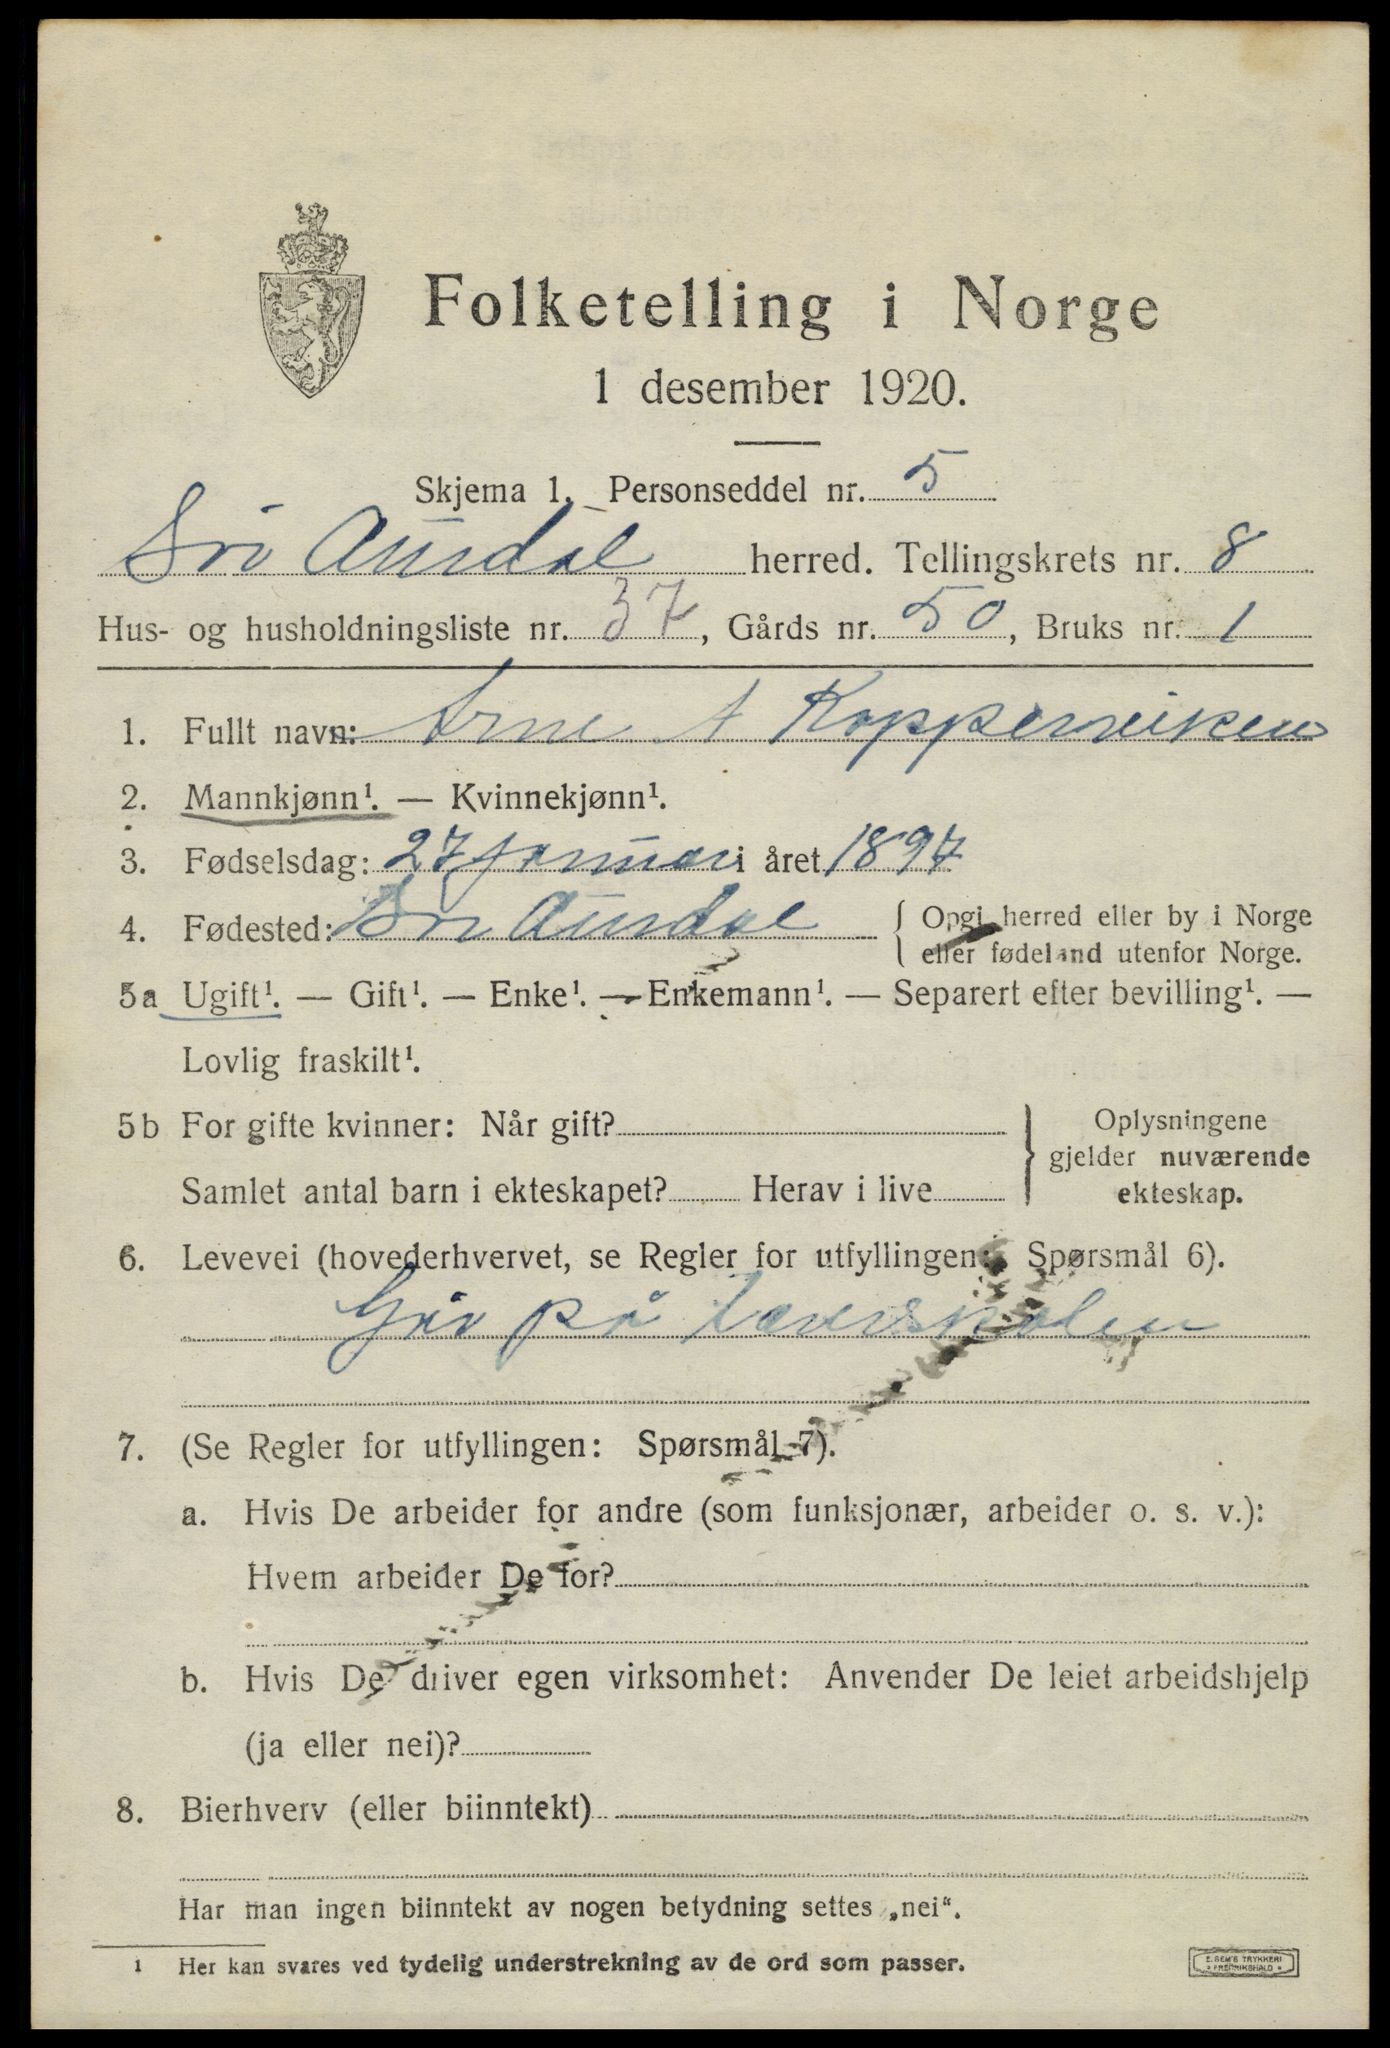 Folketelling i Norge
1 desember 1920.
Skjema 1. Personseddel nr. 5
Sør Aurdal herred. Tellingskrets nr. 8
Hus- og husholdningsliste nr. 37, Gårds nr. 50, Bruks nr. 1
1. Fullt navn: Arne A Kopperviken
2. Mannkjønn¹. — Kvinnekjønn¹.
3. Fødselsdag: 27 januar i året 1897
4. Fødested: Sør Aurdal { Opgi herred eller by i Norge
eller fødeland utenfor Norge.
5a Ugift¹. — Gift¹. — Enke¹. — Enkemann¹. — Separert efter bevilling¹. —
Lovlig fraskilt¹.
5b For gifte kvinner: Når gift? } Oplysningene
gjelder nuværende
Samlet antal barn i ekteskapet? Herav i live ekteskap.
6. Levevei (hovederhvervet, se Regler for utfyllingen: Spørsmål 6).
Går på Lærerskolen
7. (Se Regler for utfyllingen: Spørsmål 7).
a. Hvis De arbeider for andre (som funksjonær, arbeider o. s. v.):
Hvem arbeider De for?
b. Hvis De driver egen virksomhet: Anvender De leiet arbeidshjelp
(ja eller nei)?
8. Bierhverv (eller biinntekt)
Har man ingen biinntekt av nogen betydning settes „nei“.
1 Her kan svares ved tydelig understrekning av de ord som passer.
E. SEM'S TRYKKERI
FREDRIKSHALD